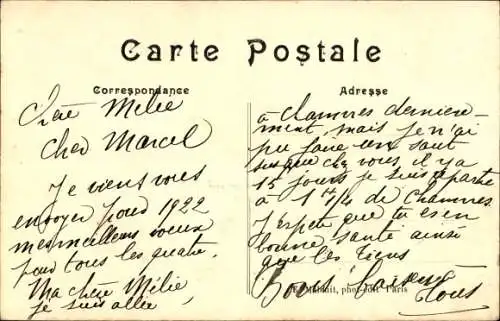 Carte Postale
Correspondance
Adresse
Chère Mélie
Cher Marcel
Je viens vous
envoyer pour 1922
mes meilleurs voeux
pour tous les quatre.
Ma chère Mélie
je suis allée
à Chamvres dernière-
ment mais je n'ai
pu faire un saut
jusque chez vous, il y a
15 jours je suis repartie
à 1 H 1/4 de Chamvres
J'espère que tu es en
bonne santé ainsi
que les tiens
Bons baisers
à tous
phot-édit Paris